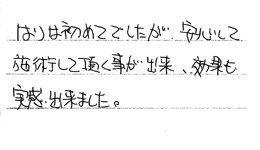 はりは初めてでしたが、安心して
施術して頂く事が出来、効果も
実感出来ました。